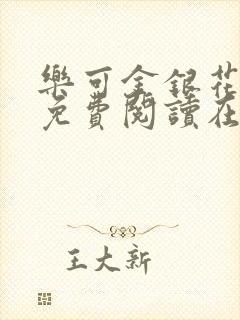 樂可金銀花
免費閱讀在
王大新